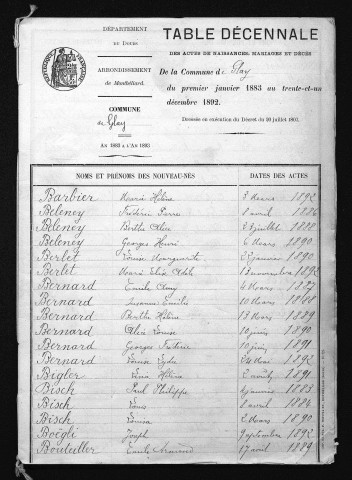 DÉPARTEMENT
DU DOUBS
ARRONDISSEMENT
de Montbéliard.
COMMUNE
de Glay
AN 1883 A L'AN 1893
TABLE DÉCENNALE
DES ACTES DE NAISSANCES, MARIAGES ET DÉCÈS
De la Commune de Glay
du premier janvier 1883 au trente-et-un
décembre 1892.
Dressée en exécution du Décret du 20 juillet 1807.
NOMS ET PRÉNOMS DES NOUVEAU-NÉS DATES DES ACTES
Barbier Marie Hélène 3 Mars 1892
Béleney Frédéric Pierre 8 avril 1886
Béleney Berthe Alice 3 juillet 1888
Béleney Georges Henri 6 Mars 1890
Berlet Louise Marguerite janvier 1890
Berlet Marie Elise Adèle 13 novembre 1892
Bernard Emile 4 Mars 1887
Bernard Suzanne Emilie 10 Mars 1888
Bernard Berthe Hélène 13 Mars 1889
Bernard Alice Louise 10 juin 1890
Bernard Georges Frédéric 10 juin 1891
Bernard Louise Lydie Mai 1892
Bigler Lina Héléna 2 août 1891
Bisch Paul Philippe janvier 1883
Bisch Louis 2 avril 1884
Bisch Louisa 2 Mars 1890
Boëgli Joseph 9 septembre 1892
Bouteiller Emile Armand 17 avril 1889